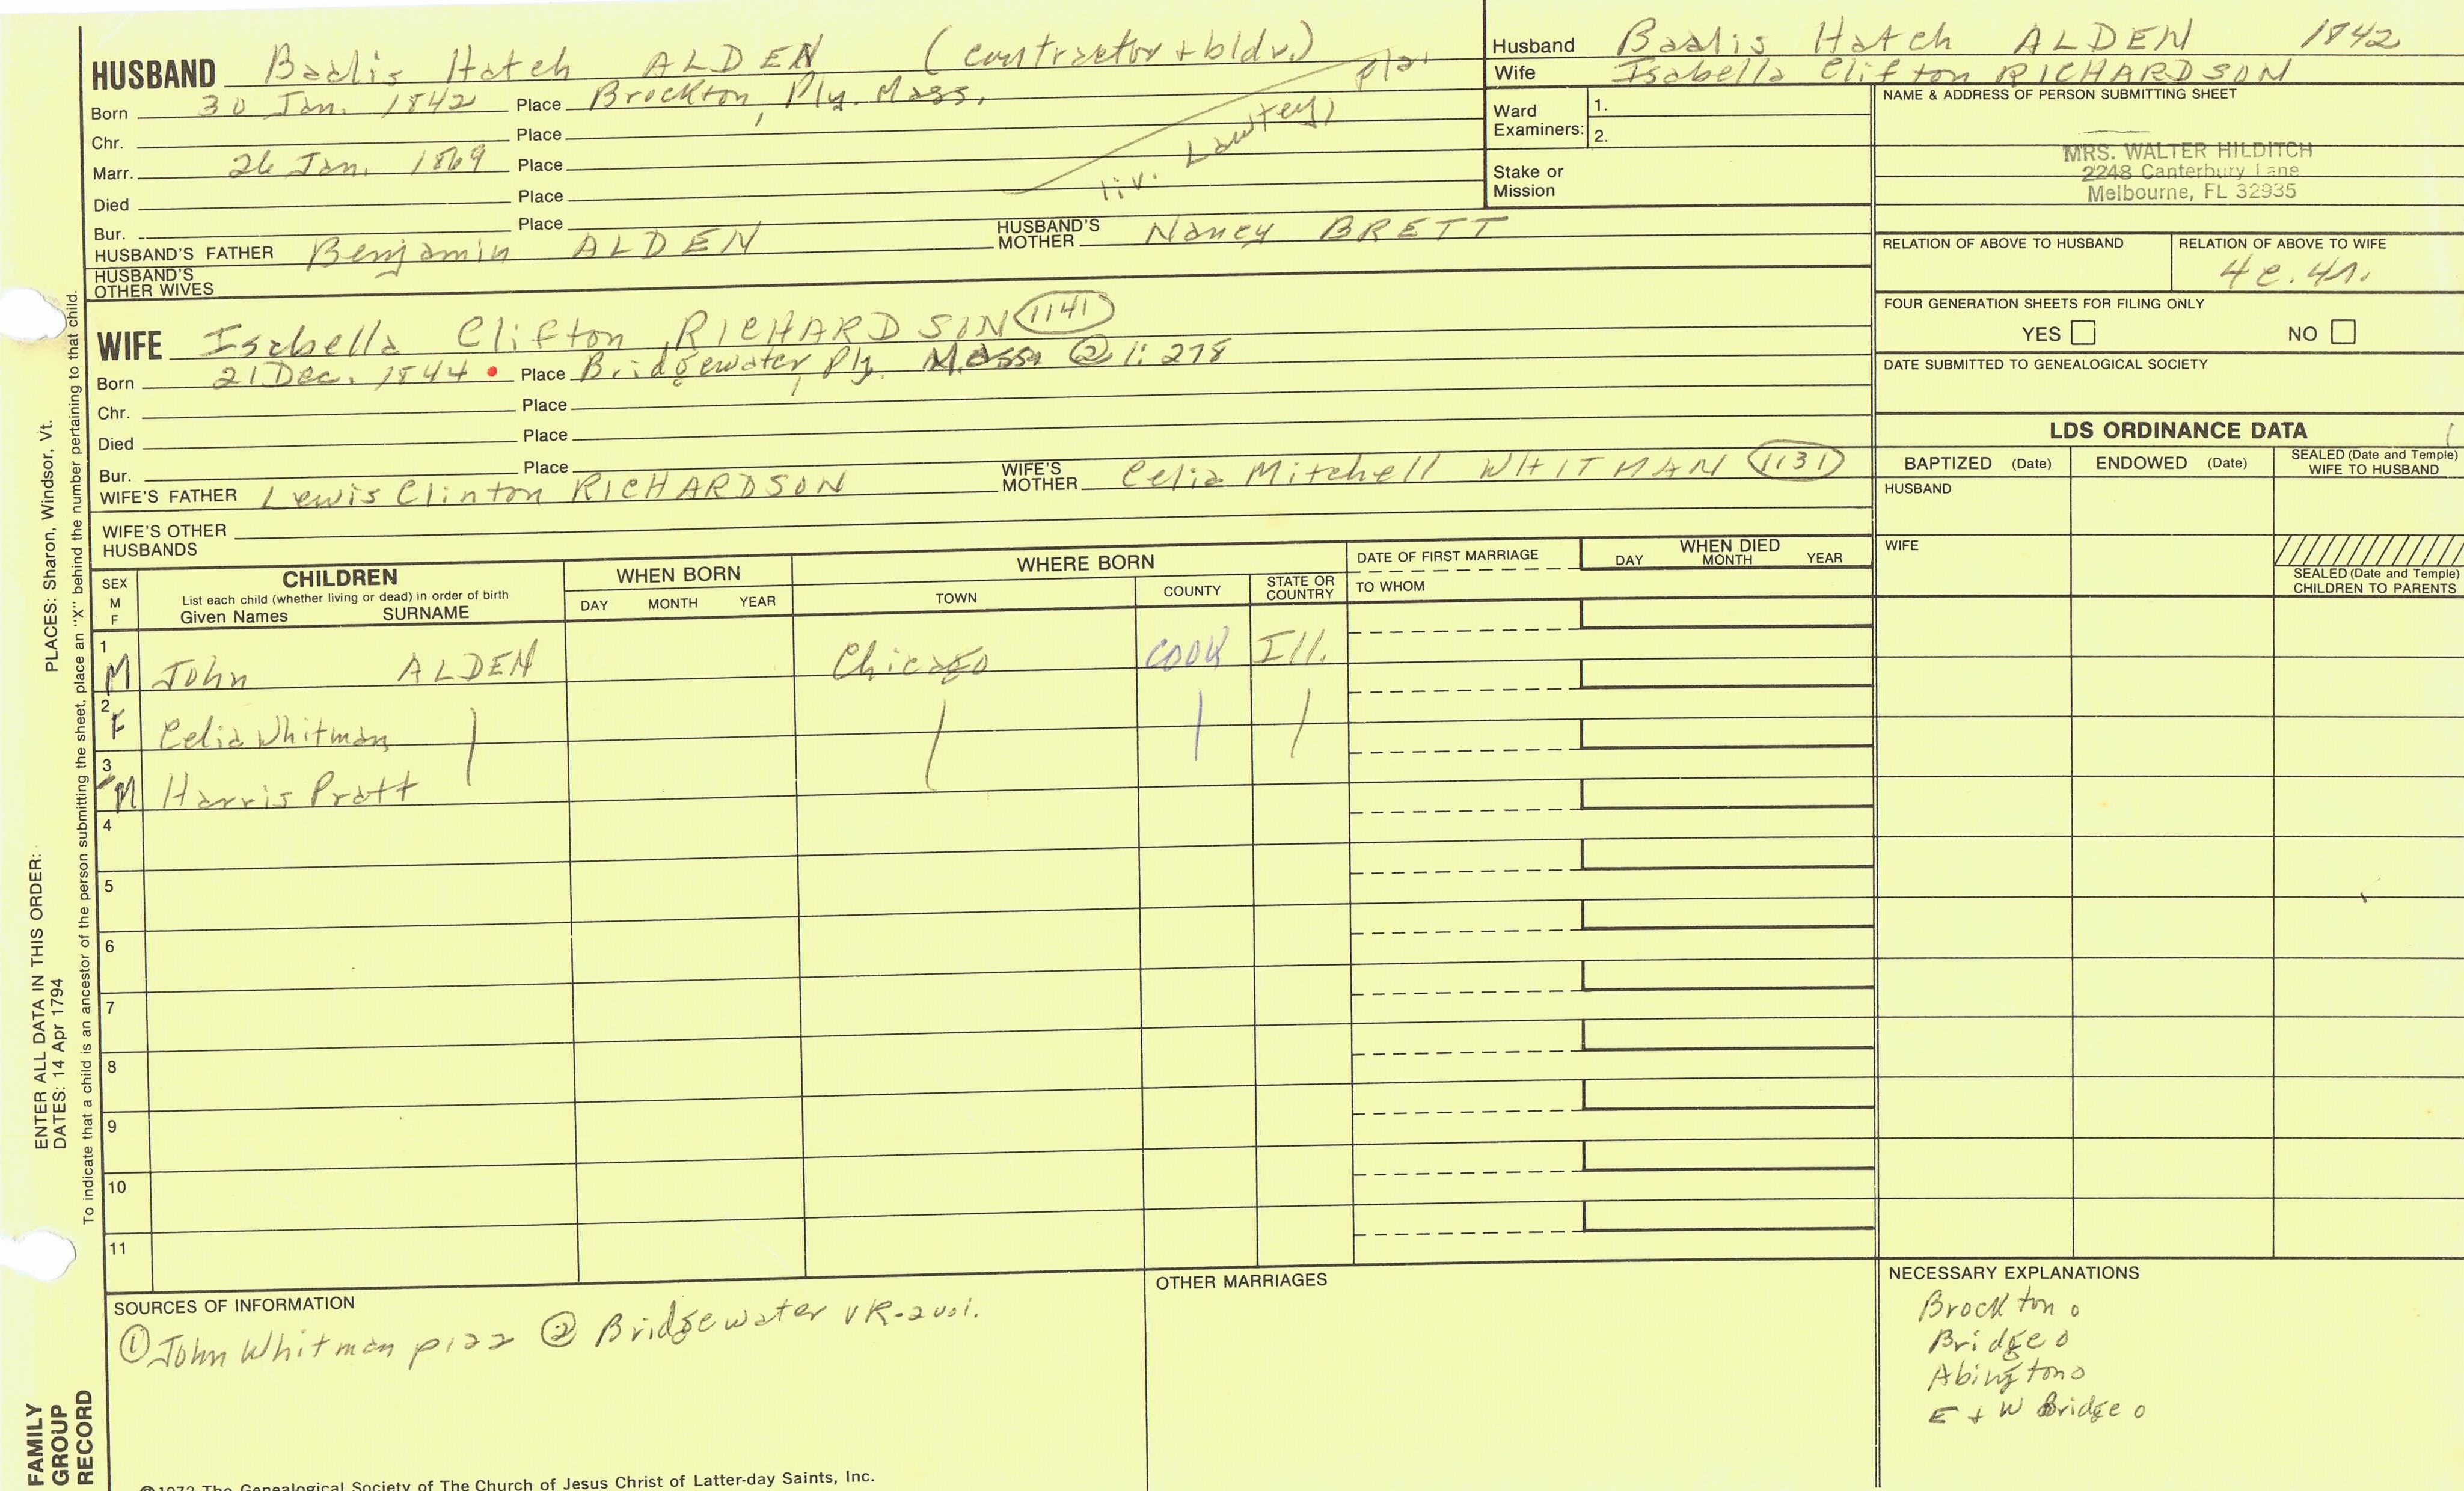 HUSBAND Baalis Hatch ALDEN (contractor + bldr.)
Born 30 Jan. 1842 Place Brockton, Ply. Mass.
Chr. Place
Marr. 26 Jan. 1869 Place
liv. Lawtey, Fla.
Died Place
Bur. Place
HUSBAND'S FATHER Benjamin ALDEN HUSBAND'S MOTHER Nancy BRETT
HUSBAND'S OTHER WIVES
WIFE Isabella Clifton RICHARDSON 1141
Born 21 Dec. 1844 • Place Bridgewater, Ply. Mass. ② 1: 278
Chr. Place
Died Place
Bur. Place
WIFE'S FATHER Lewis Clinton RICHARDSON WIFE'S MOTHER Celia Mitchell WHITMAN 1131
WIFE'S OTHER HUSBANDS
Husband Baalis Hatch ALDEN 1842
Wife Isabella Clifton RICHARDSON
Ward Examiners: 1.
2.
Stake or Mission
NAME & ADDRESS OF PERSON SUBMITTING SHEET
MRS. WALTER HILDITCH
2248 Canterbury Lane
Melbourne, FL 32935
RELATION OF ABOVE TO HUSBAND RELATION OF ABOVE TO WIFE
4c.4r.
FOUR GENERATION SHEETS FOR FILING ONLY
YES NO
DATE SUBMITTED TO GENEALOGICAL SOCIETY
LDS ORDINANCE DATA
BAPTIZED (Date) ENDOWED (Date) SEALED (Date and Temple) WIFE TO HUSBAND
HUSBAND
WIFE
SEALED (Date and Temple) CHILDREN TO PARENTS
SEX M F CHILDREN WHEN BORN WHERE BORN DATE OF FIRST MARRIAGE WHEN DIED
List each child (whether living or dead) in order of birth
Given Names SURNAME DAY MONTH YEAR TOWN COUNTY STATE OR COUNTRY TO WHOM DAY MONTH YEAR
1 M John ALDEN Chicago COOK Ill.
2 F Celia Whitman
3 M Harris Pratt
4
5
6
7
8
9
10
11
SOURCES OF INFORMATION
① John Whitman p122 ② Bridgewater VR-2vol.
OTHER MARRIAGES
NECESSARY EXPLANATIONS
Brockton o
Bridge o
Abington o
E + W Bridge o
©1972 The Genealogical Society of The Church of Jesus Christ of Latter-day Saints, Inc.
FAMILY GROUP RECORD
ENTER ALL DATA IN THIS ORDER:
DATES: 14 Apr 1794 PLACES: Sharon, Windsor, Vt.
To indicate that a child is an ancestor of the person submitting the sheet, place an "X" behind the number pertaining to that child.